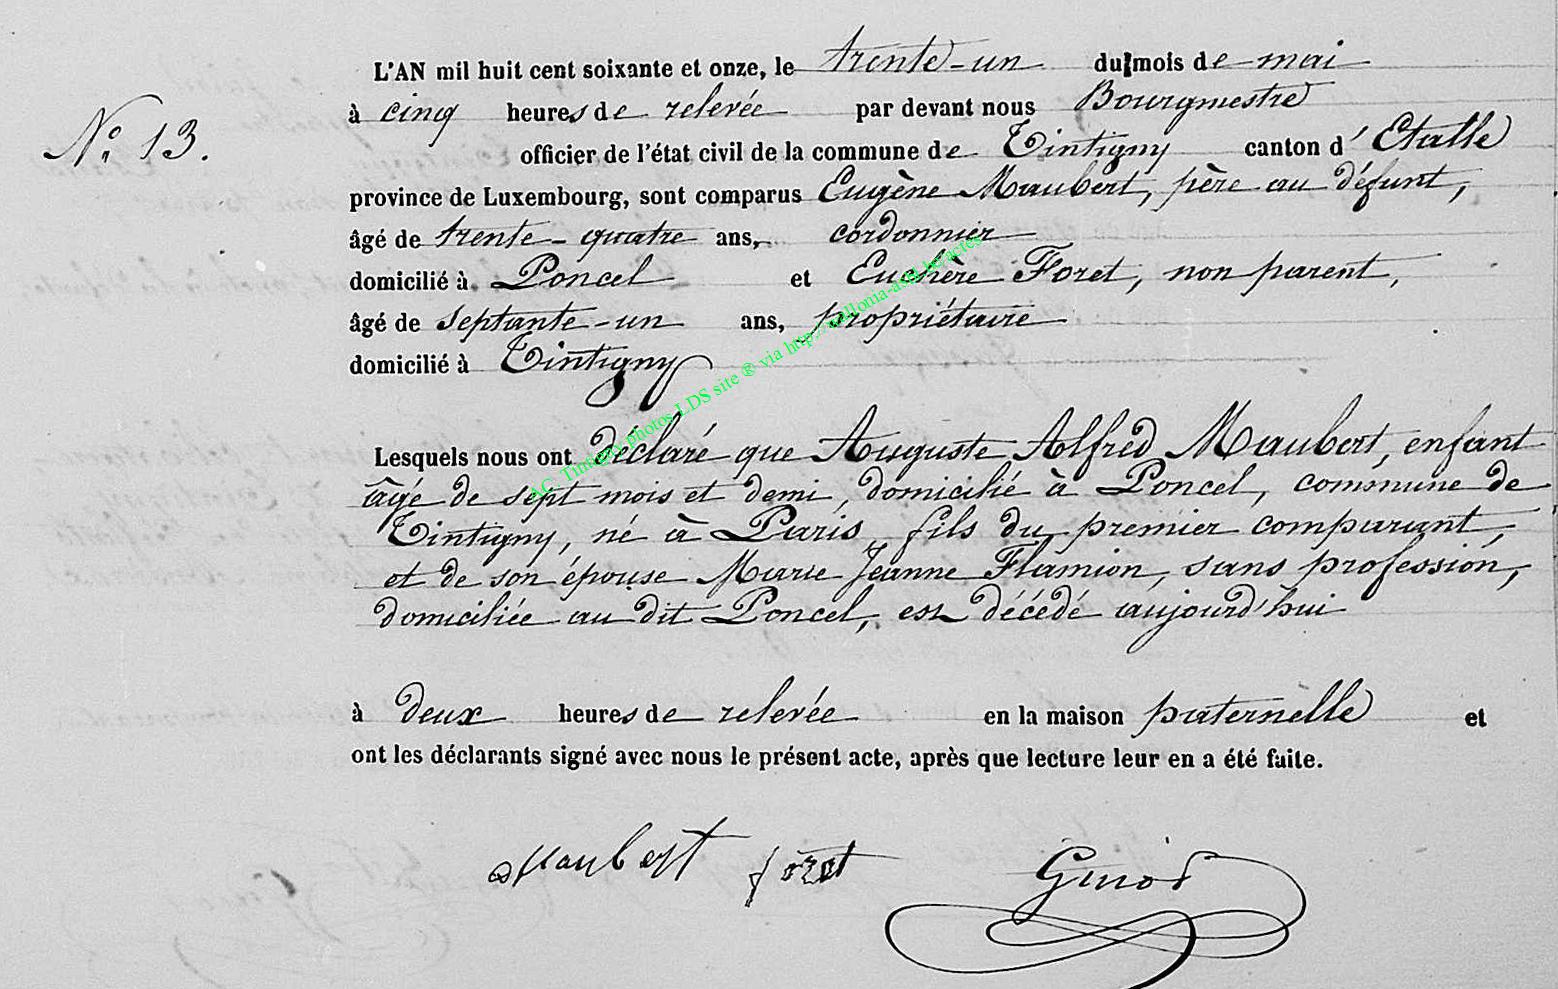 L'AN mil huit cent soixante et onze, le trente-un du mois de mai
N° 13.
à cinq heures de relevée par devant nous Bourgmestre
officier de l'état civil de la commune de Tintigny canton d'Etalle
province de Luxembourg, sont comparus Eugène Maubert, père au défunt,
âgé de trente-quatre ans, cordonnier
domicilié à Poncel et Euchère Foret, non parent,
âgé de septante-un ans, propriétaire
domicilié à Tintigny
AC Tintigny photos LDS site ® via http://wallonia-asbl.be/actes
Lesquels nous ont déclaré que Auguste Alfred Maubert, enfant
âgé de sept mois et demi, domicilié à Poncel, commune de
Tintigny, né à Paris, fils du premier comparant,
et de son épouse Marie Jeanne Flamion, sans profession,
domiciliée au dit Poncel, est décédé aujourd'hui
à deux heures de relevée en la maison paternelle et
ont les déclarants signé avec nous le présent acte, après que lecture leur en a été faite.
Maubert foret